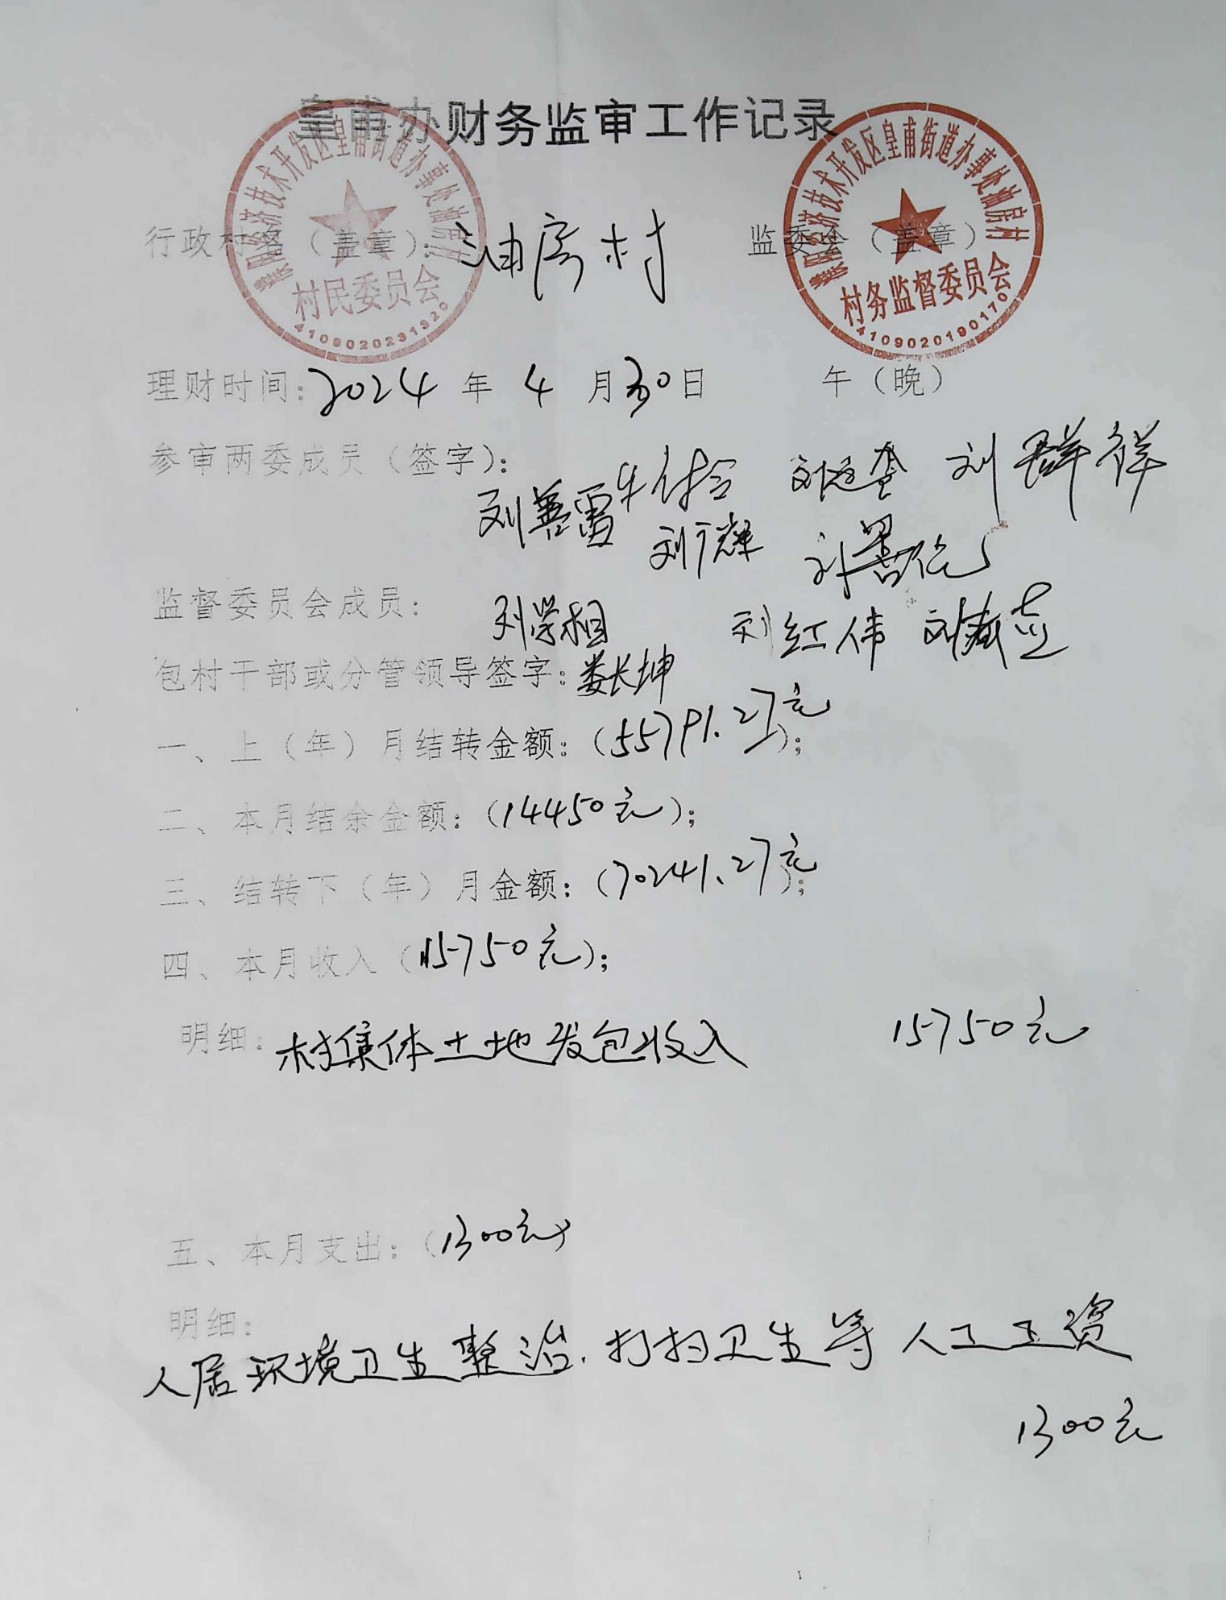 皇甫办财务监审工作记录
濮阳经济技术开发区皇甫街道办事处油房村
村民委员会
4109020231320
濮阳经济技术开发区皇甫街道办事处油房村
村务监督委员会
4109020190170
行政村名（盖章）：油房村 监委会（盖章）
理财时间：2024年4月30日 午（晚）
参审两委成员（签字）：
刘善雷 刘群祥
刘广辉
监督委员会成员：刘学相 刘红伟 刘献志
包村干部或分管领导签字：娄长坤
一、上（年）月结转金额：（55791.27元）；
二、本月结余金额：（14450元）；
三、结转下（年）月金额：（70241.27元）；
四、本月收入（15750元）；
明细：村集体土地发包收入 15750元
五、本月支出：（1300元）
明细：
人居环境卫生整治.打扫卫生等人工工资
1300元